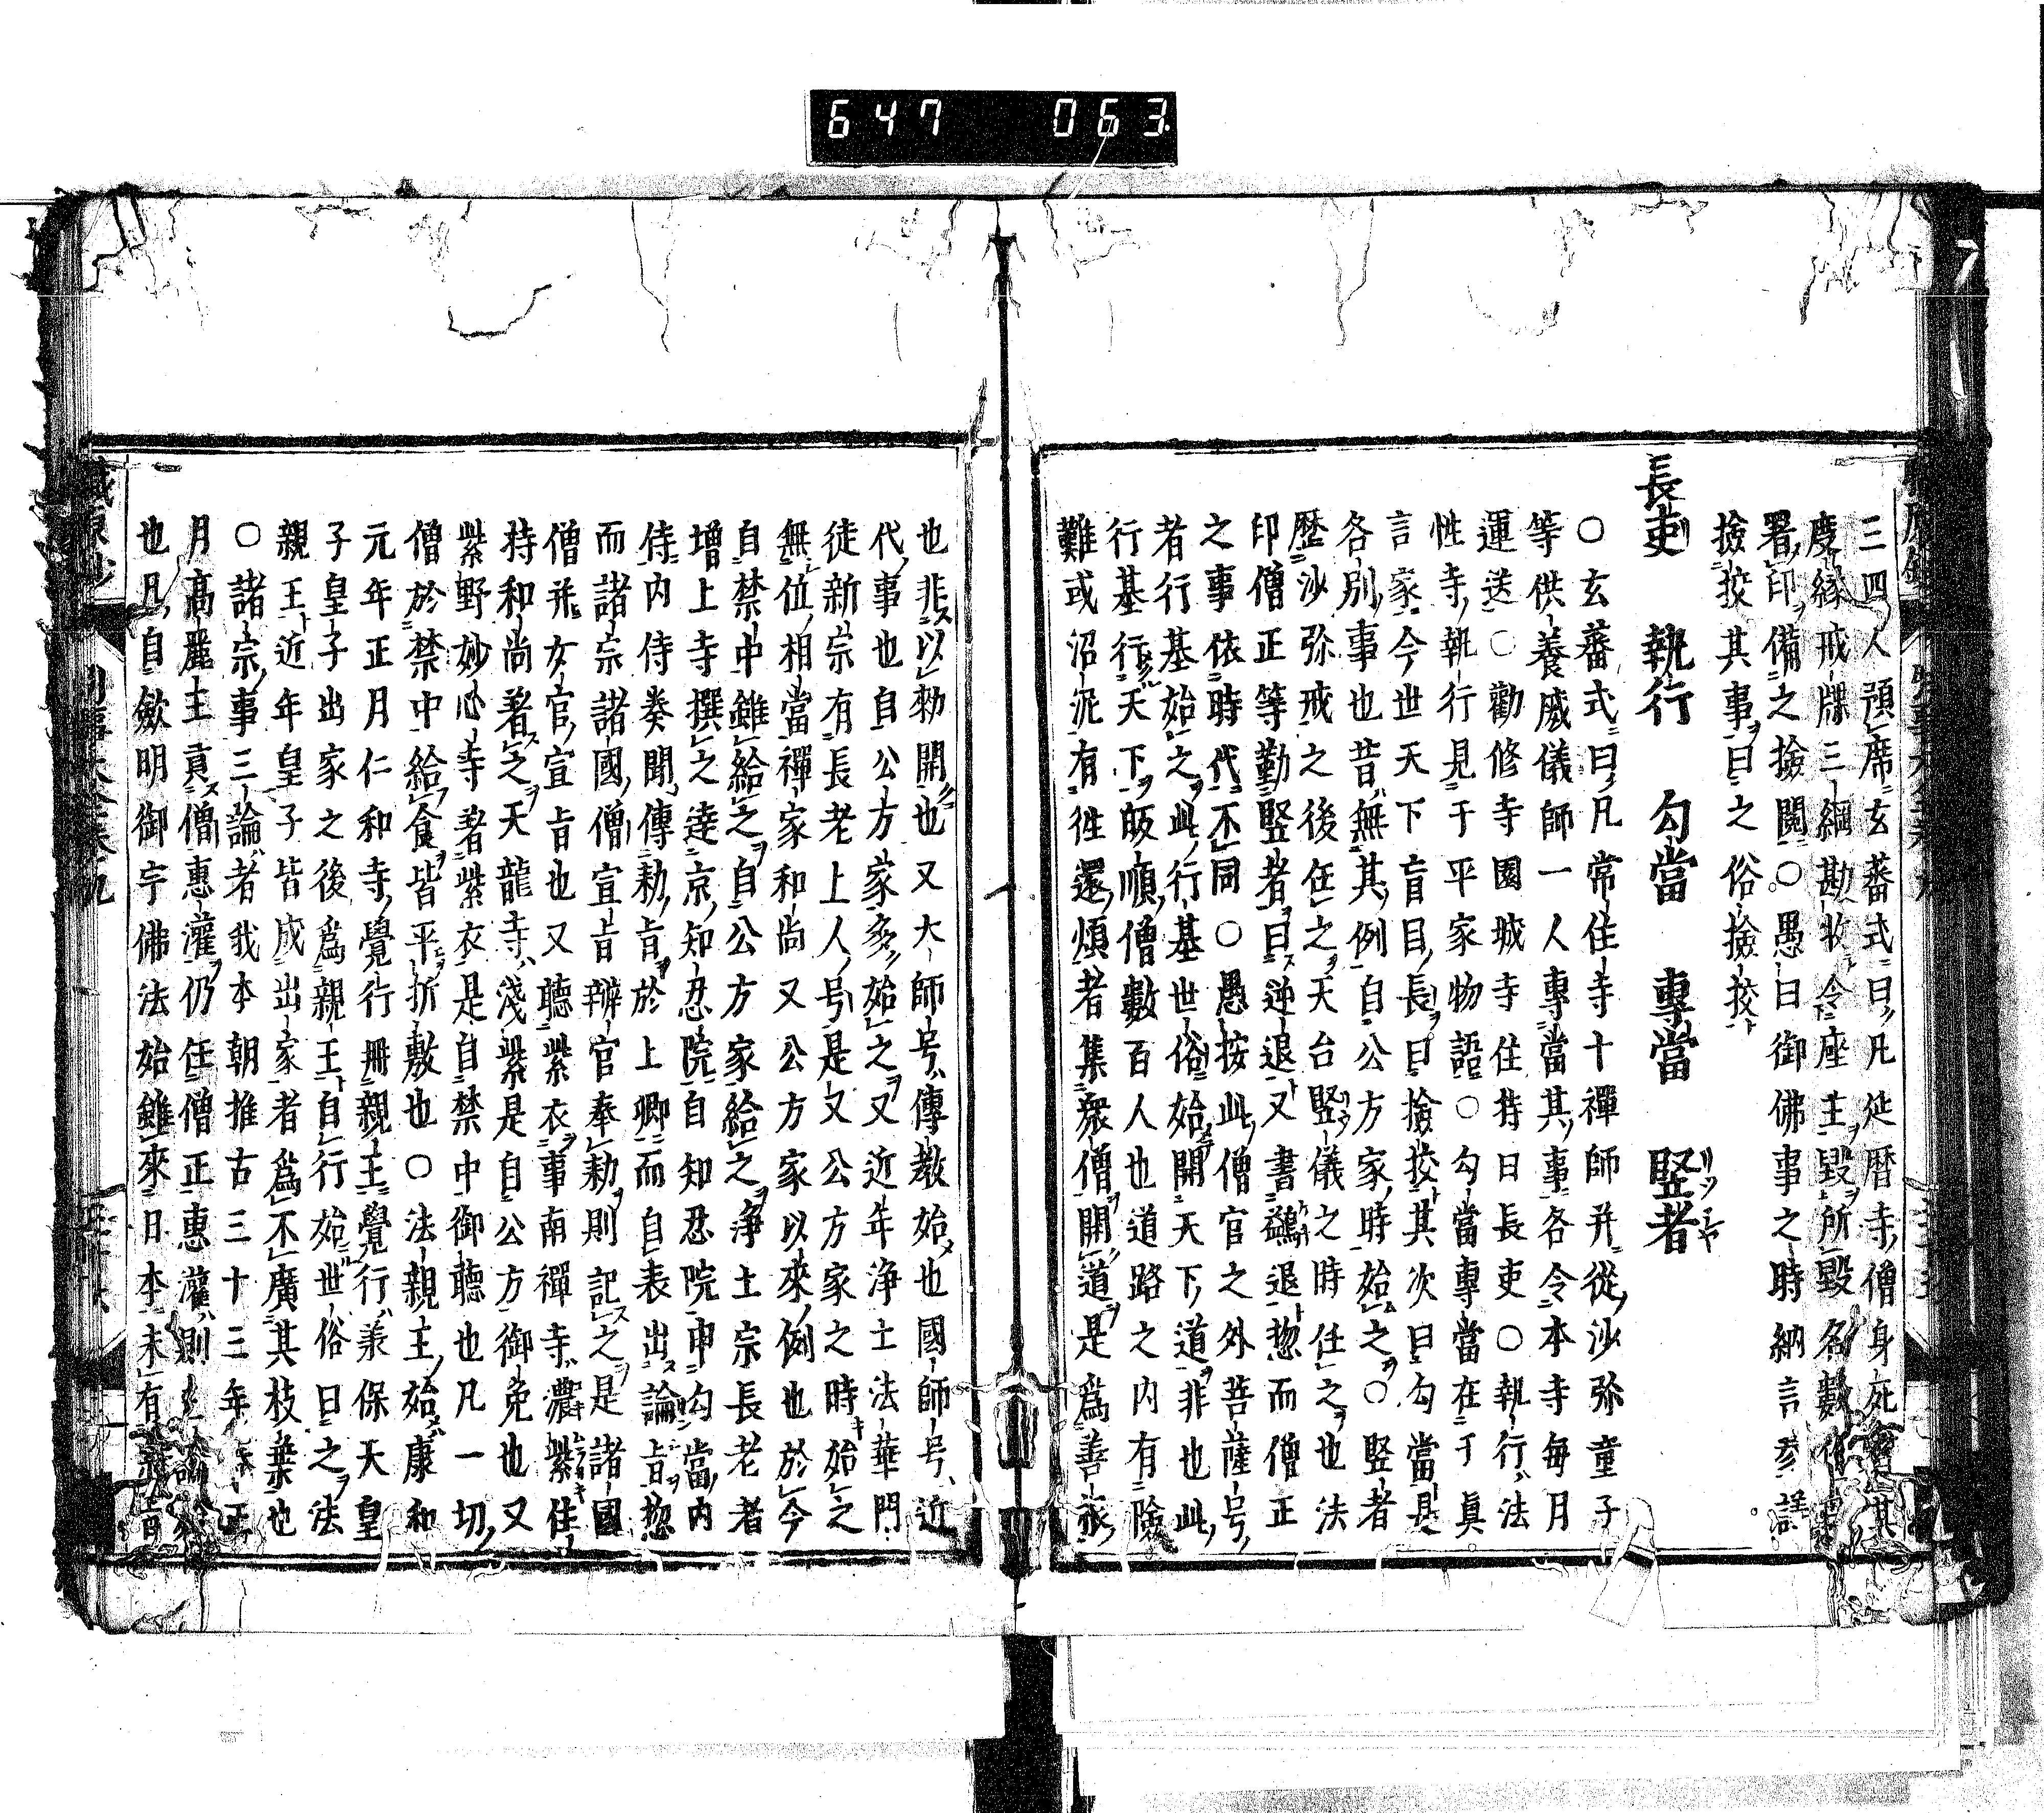 647 063
三四人預席玄蕃式曰凡延暦寺僧身死其
度縁戒牒三綱勘收令座主毀所毀名数
署印備之撿閲○愚曰御佛事之時納言參議
撿挍其事曰之俗撿挍
長吏 執行 勾當 專當 竪者
○玄蕃式曰凡常住寺十禪師并從沙弥童子
等供養威儀師一人專當其事各令本寺毎月
運送○勸修寺園城寺住持曰長吏○執行法
性寺執行見于平家物語○勾當專當在于眞
言家今世天下盲目長曰撿挍其次曰勾當是
各別事也昔無其例自公方家時始之○竪者
歴沙弥戒之後任之天台竪儀之時任之也法
印僧正等勤竪者曰逆退又書鷁退惣而僧正
之事依時代不同○愚按此僧官之外菩薩号
者行基始之此行基世俗始開天下道非也此
行基行天下皈順僧數百人也道路之内有險
難或沼泥有徃還煩者集衆僧開道是爲善
也非以勅開也又大師号傳教始也國師号近
代事也自公方家多始之又近年淨土法華門
徒新宗有長老上人号是又公方家之時始之
無位相當禪家和尚又公方家以來例也於今
自禁中雖給之自公方家給之淨土宗長老者
増上寺撰之達京知忍院自知忍院申勾當内
侍内侍奏聞傳勅旨於上卿而自表出論旨惣
而諸宗諸國僧宣旨辨官奉勅則記之是諸國
僧并女官宣旨也又聽紫衣事南禪寺濃紫住
持和尚著之天龍寺淺紫是自公方御免也又
紫野妙心寺著紫衣是自禁中御聽也凡一切
僧於禁中給食皆平折敷也○法親王始康和
元年正月仁和寺覺行冊親王覺行義保天皇
子皇子出家之後爲親王自行始世俗曰之法
親王近年皇子皆成出家者爲不廣其枝葉也
○諸宗事三論者我本朝推古三十三年正
月高麗主貢僧惠灌仍任僧正惠灌則
也凡自歛明御宇佛法始雖來日本未有